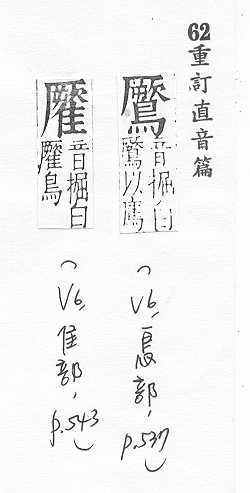 62重訂直音篇
鷢
音掘白
鷢以鷹
（V6, 鳥部, p.537）
音掘白
鳥
（V6, 隹部, p.543）